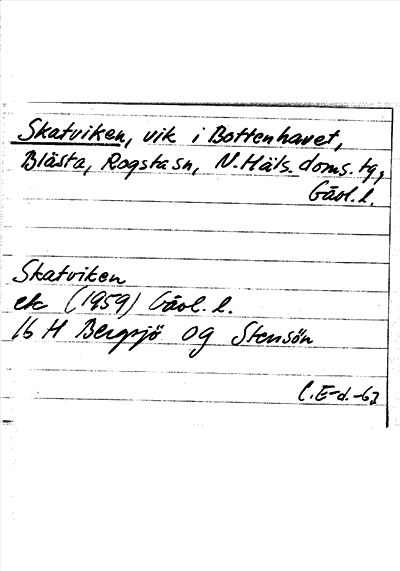 Skatviken, vik i Bottenhavet,
Blästa, Rogsta sn, N. Häls. doms. tg,
Gävl. l.
Skatviken
ek (1959) Gävl. l.
16 H Bergsjö og Stensön
C. E-d. -63